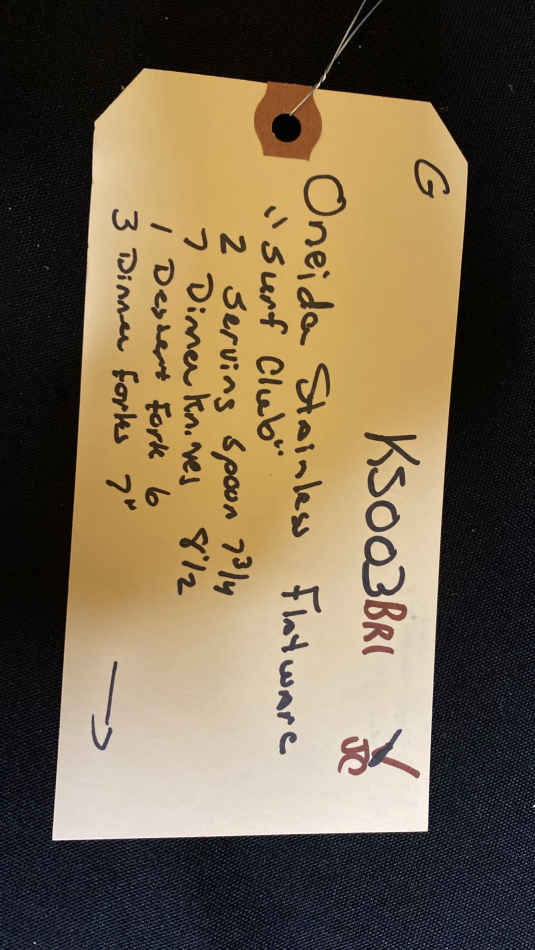 G
KSOO3BRI
JC
Oneida Stainless Flatware
"Surf Club"
2 Serving Spoon 7 3/4
7 Dinner Knives 8 1/2
1 Dessert Fork 6
3 Dinner Forks 7"
→